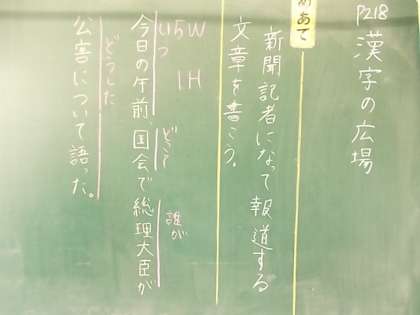 P218 漢字の広場
めあて
新聞記者になって報道する
文章を書こう。
5W
1H
いつ
どこで
誰が
今日の午前、国会で総理大臣が
どうした
公害について語った。